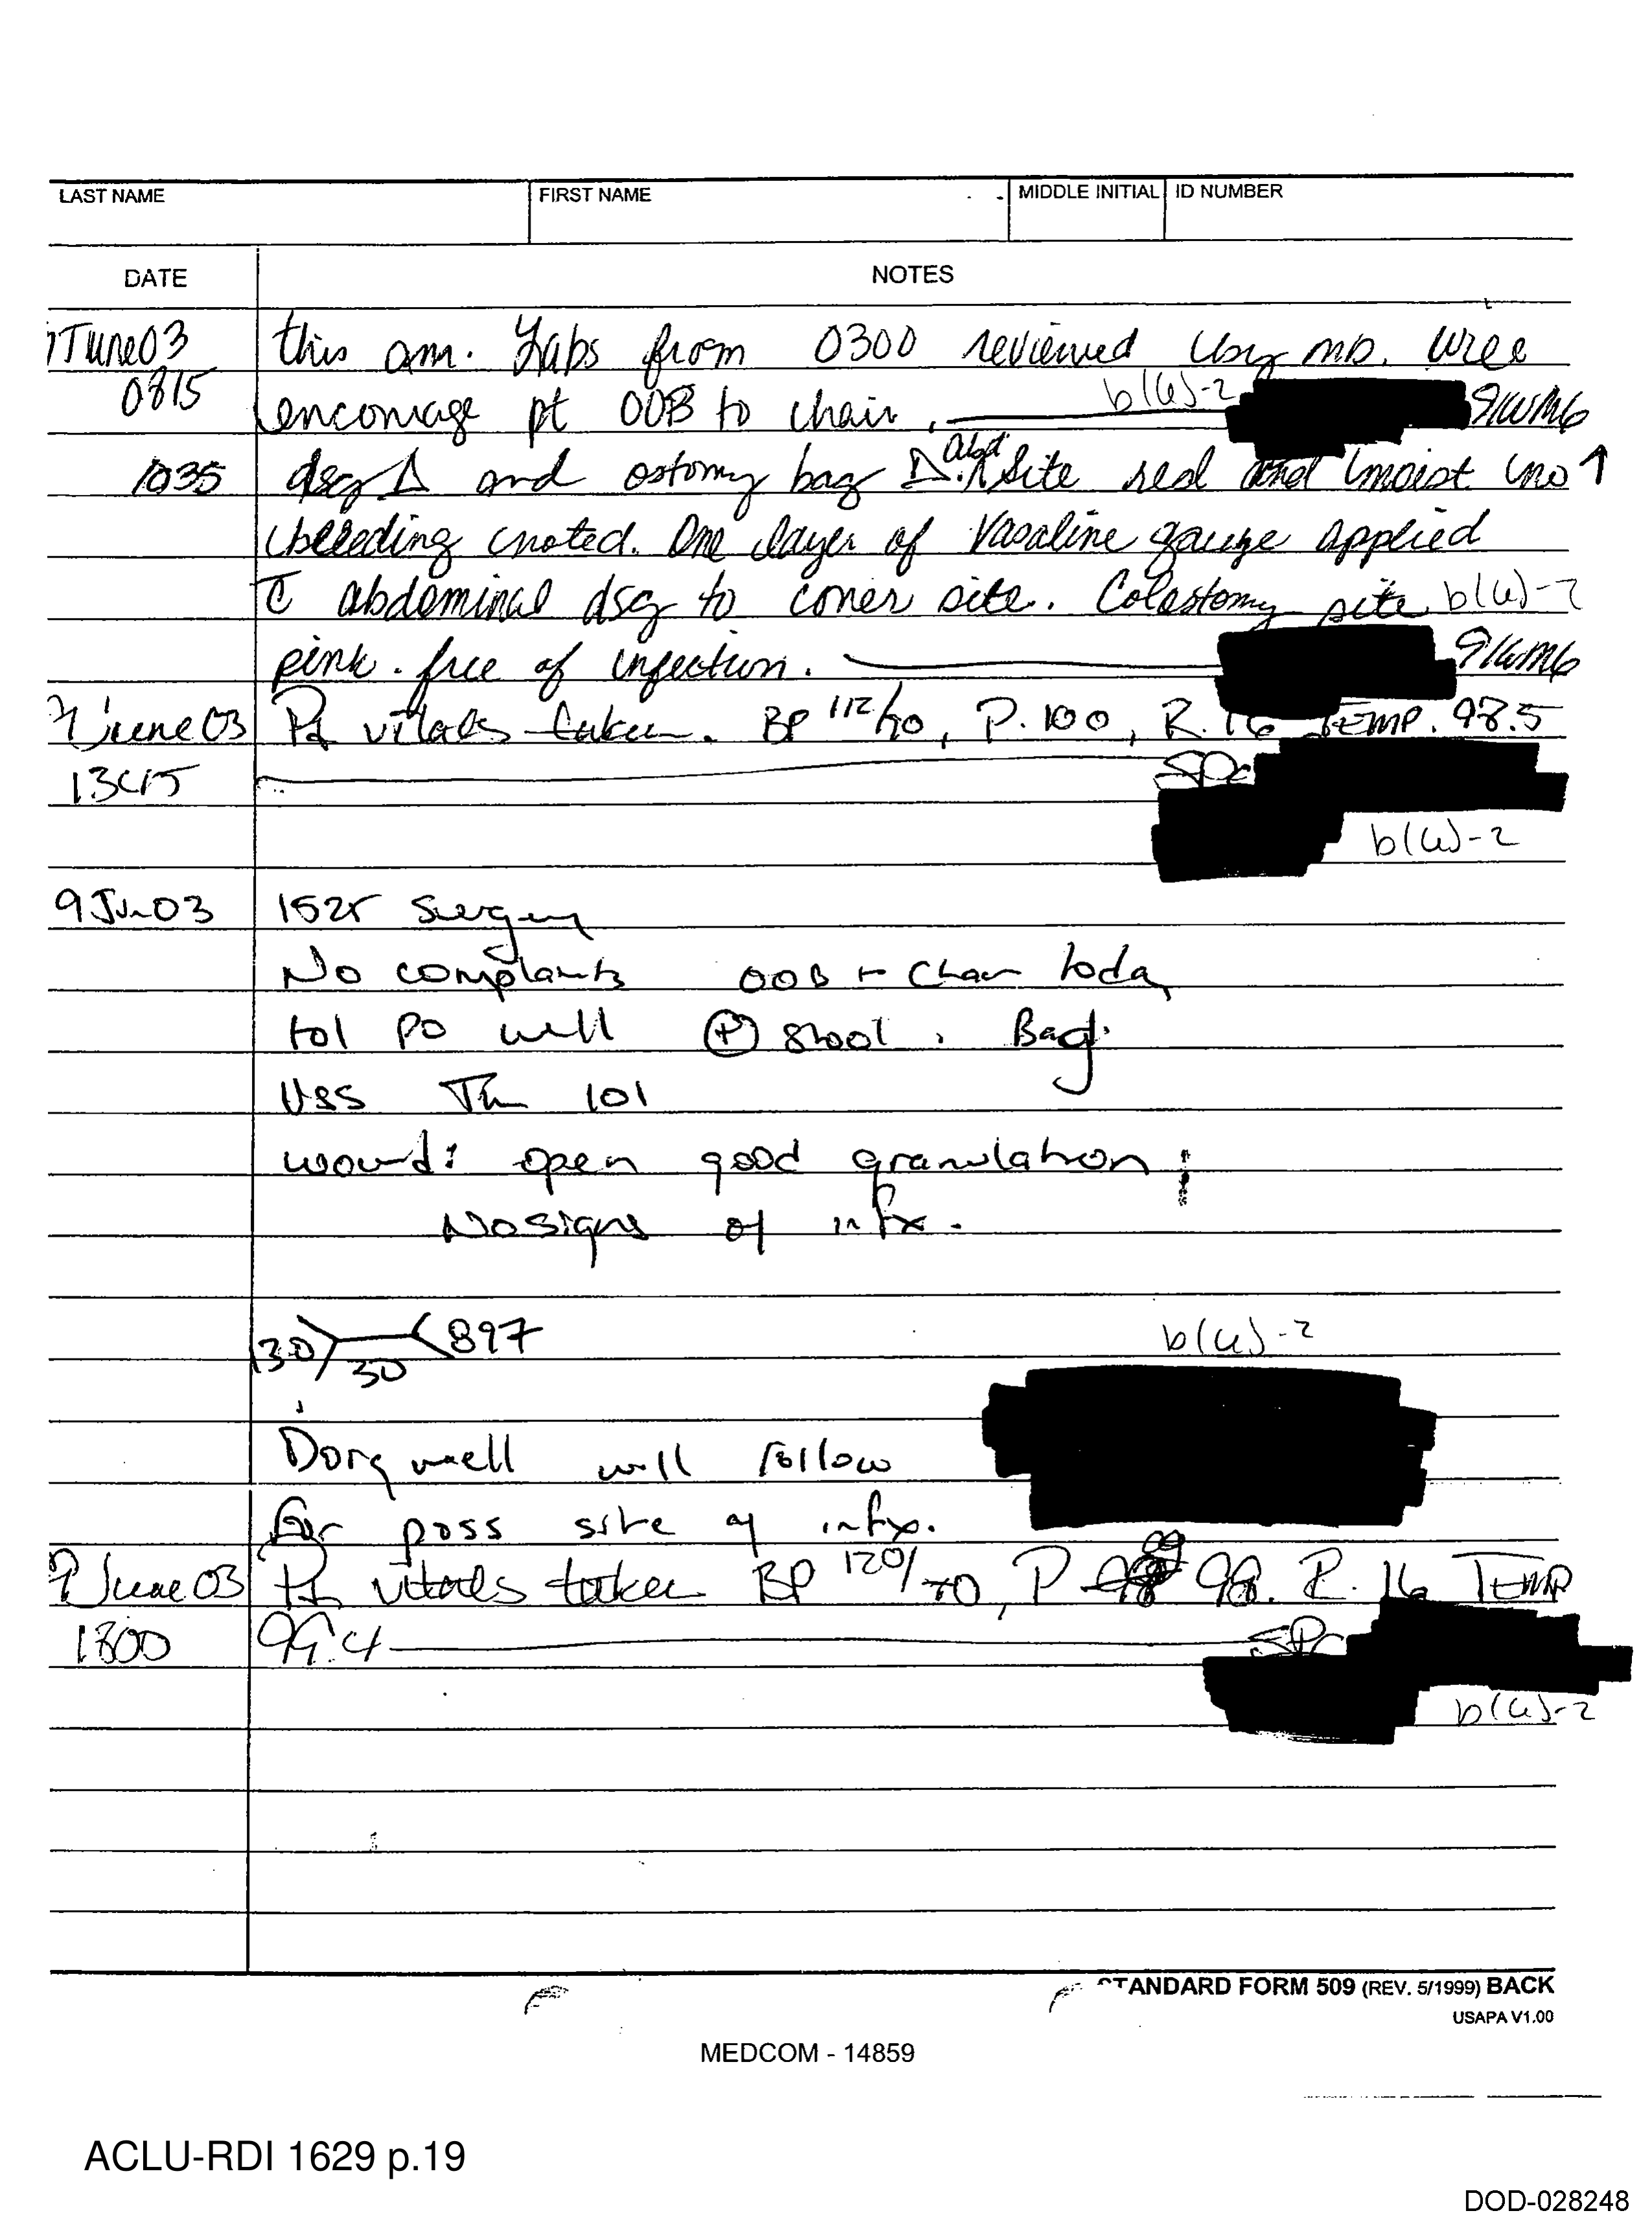 LAST NAME FIRST NAME MIDDLE INITIAL ID NUMBER
DATE NOTES
June03 this am. Labs from 0300 reviewed by MD. Will
0815 encourage pt OOB to chair. b(6)-2 91WM6
1035 dsg Δ and ostomy bag Δ. abd site red and moist no ↑
bleeding noted. One layer of Vasaline gauze applied
c̄ abdominal dsg to cover site. Colostomy site b(6)-2
pink. free of infection. 91WM6
9 June 03 Pt vitals taken. BP 112/70, P. 100, R. 16 TEMP. 98.5
1345 SPC
b(6)-2
9 Jun 03 1525 Surgery
No complaints OOB to Chair today
tol PO well (+) stool in Bag.
VSS Tm 101
wound: open good granulation
No signs of infx.
130 30 897 b(6)-2
Doing well will follow
for poss site of infx.
9 June 03 Pt vitals taken BP 120/70, P 98. R. 16 TEMP
1800 99.4 SPC
b(6)-2
STANDARD FORM 509 (REV. 5/1999) BACK
USAPA V1.00
MEDCOM - 14859
ACLU-RDI 1629 p.19
DOD-028248